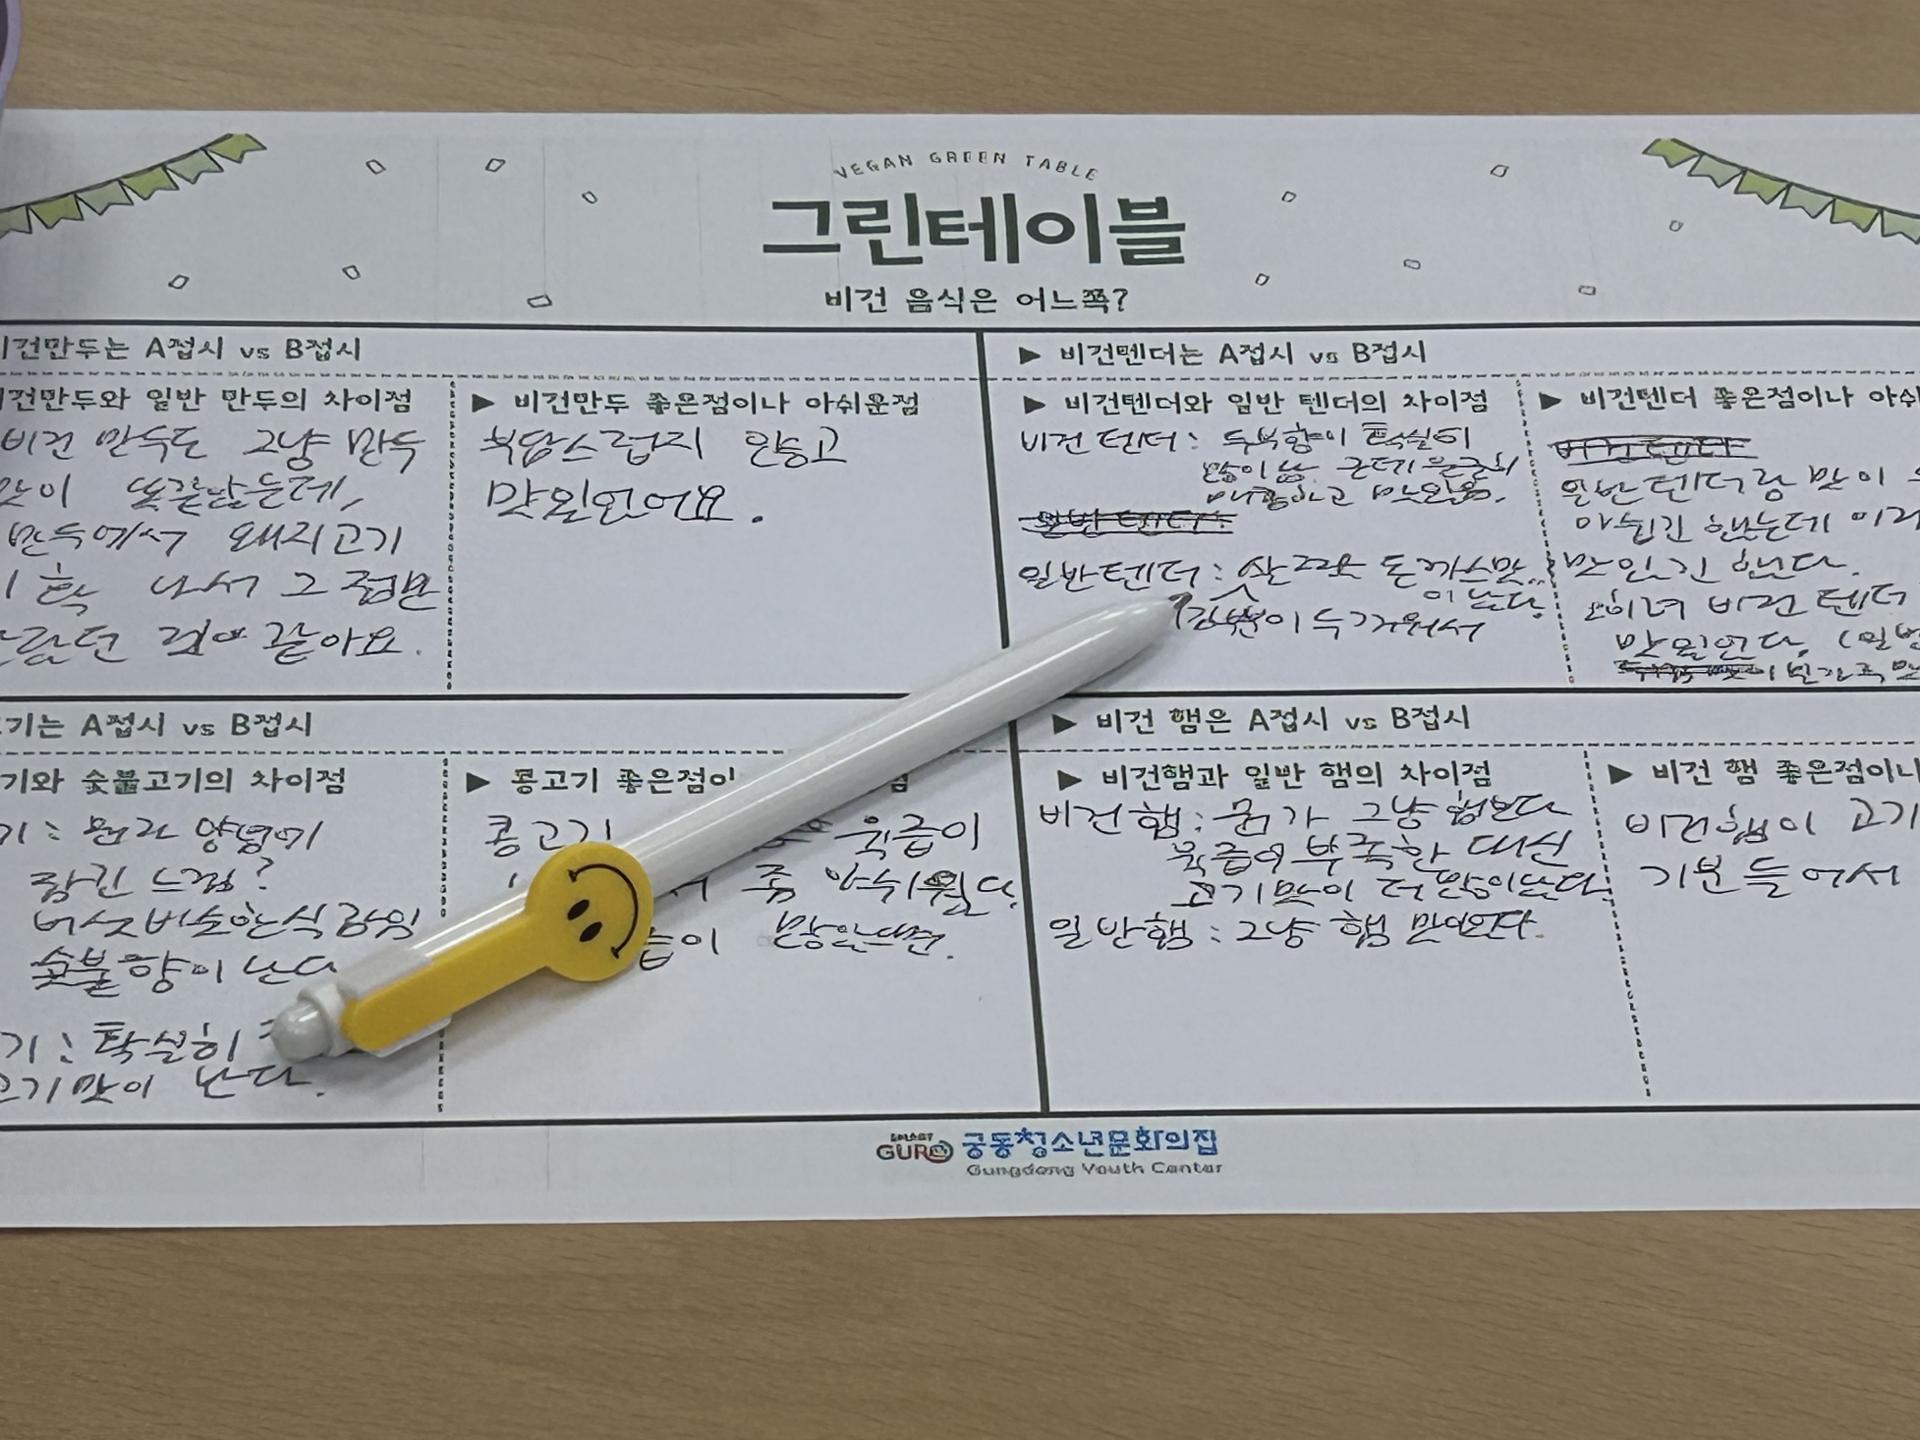 VEGAN GREEN TABLE
그린테이블
비건 음식은 어느쪽?
비건만두는 A접시 vs B접시
비건만두와 일반 만두의 차이점
비건 만두도 그냥 만두
맛이 똑같았는데,
만두에서 돼지고기
향 나서 그 점만
것이 같아요.
▶ 비건만두 좋은점이나 아쉬운점
부담스럽지 않고
맛있었어요.
▶ 비건텐더는 A접시 vs B접시
▶ 비건텐더와 일반 텐더의 차이점
비건 텐더: 두부향이 확실히
많이 남. 근데 은근히
매콤하고 맛있음.
일반텐더:
일반텐더: 살라락 돈까스맛
이 난다.
이 두꺼워서
▶ 비건텐더 좋은점이나
비건텐더
일반텐더랑 맛이
아쉽긴 했는데
맛있긴 했다.
오히려 비건 텐더
맛있었다.
기는 A접시 vs B접시
기와 숯불고기의 차이점
기: 뭔가 양념이
잠긴 느낌?
버섯 비슷한 식감임
숯불향이 난다
기: 확실히
고기맛이 난다.
▶ 콩고기 좋은점이
콩고기 육즙이
좀 아쉬웠다.
많았으면.
▶ 비건 햄은 A접시 vs B접시
▶ 비건햄과 일반 햄의 차이점
비건햄: 뭔가 그냥 햄보다
육즙이 부족한 대신
고기맛이 더 많이 난다.
일반햄: 그냥 햄 맛이었다.
▶ 비건 햄 좋은점이나
비건햄이 고기
기분 들어서
GURO 궁동청소년문화의집
Gungdong Youth Center